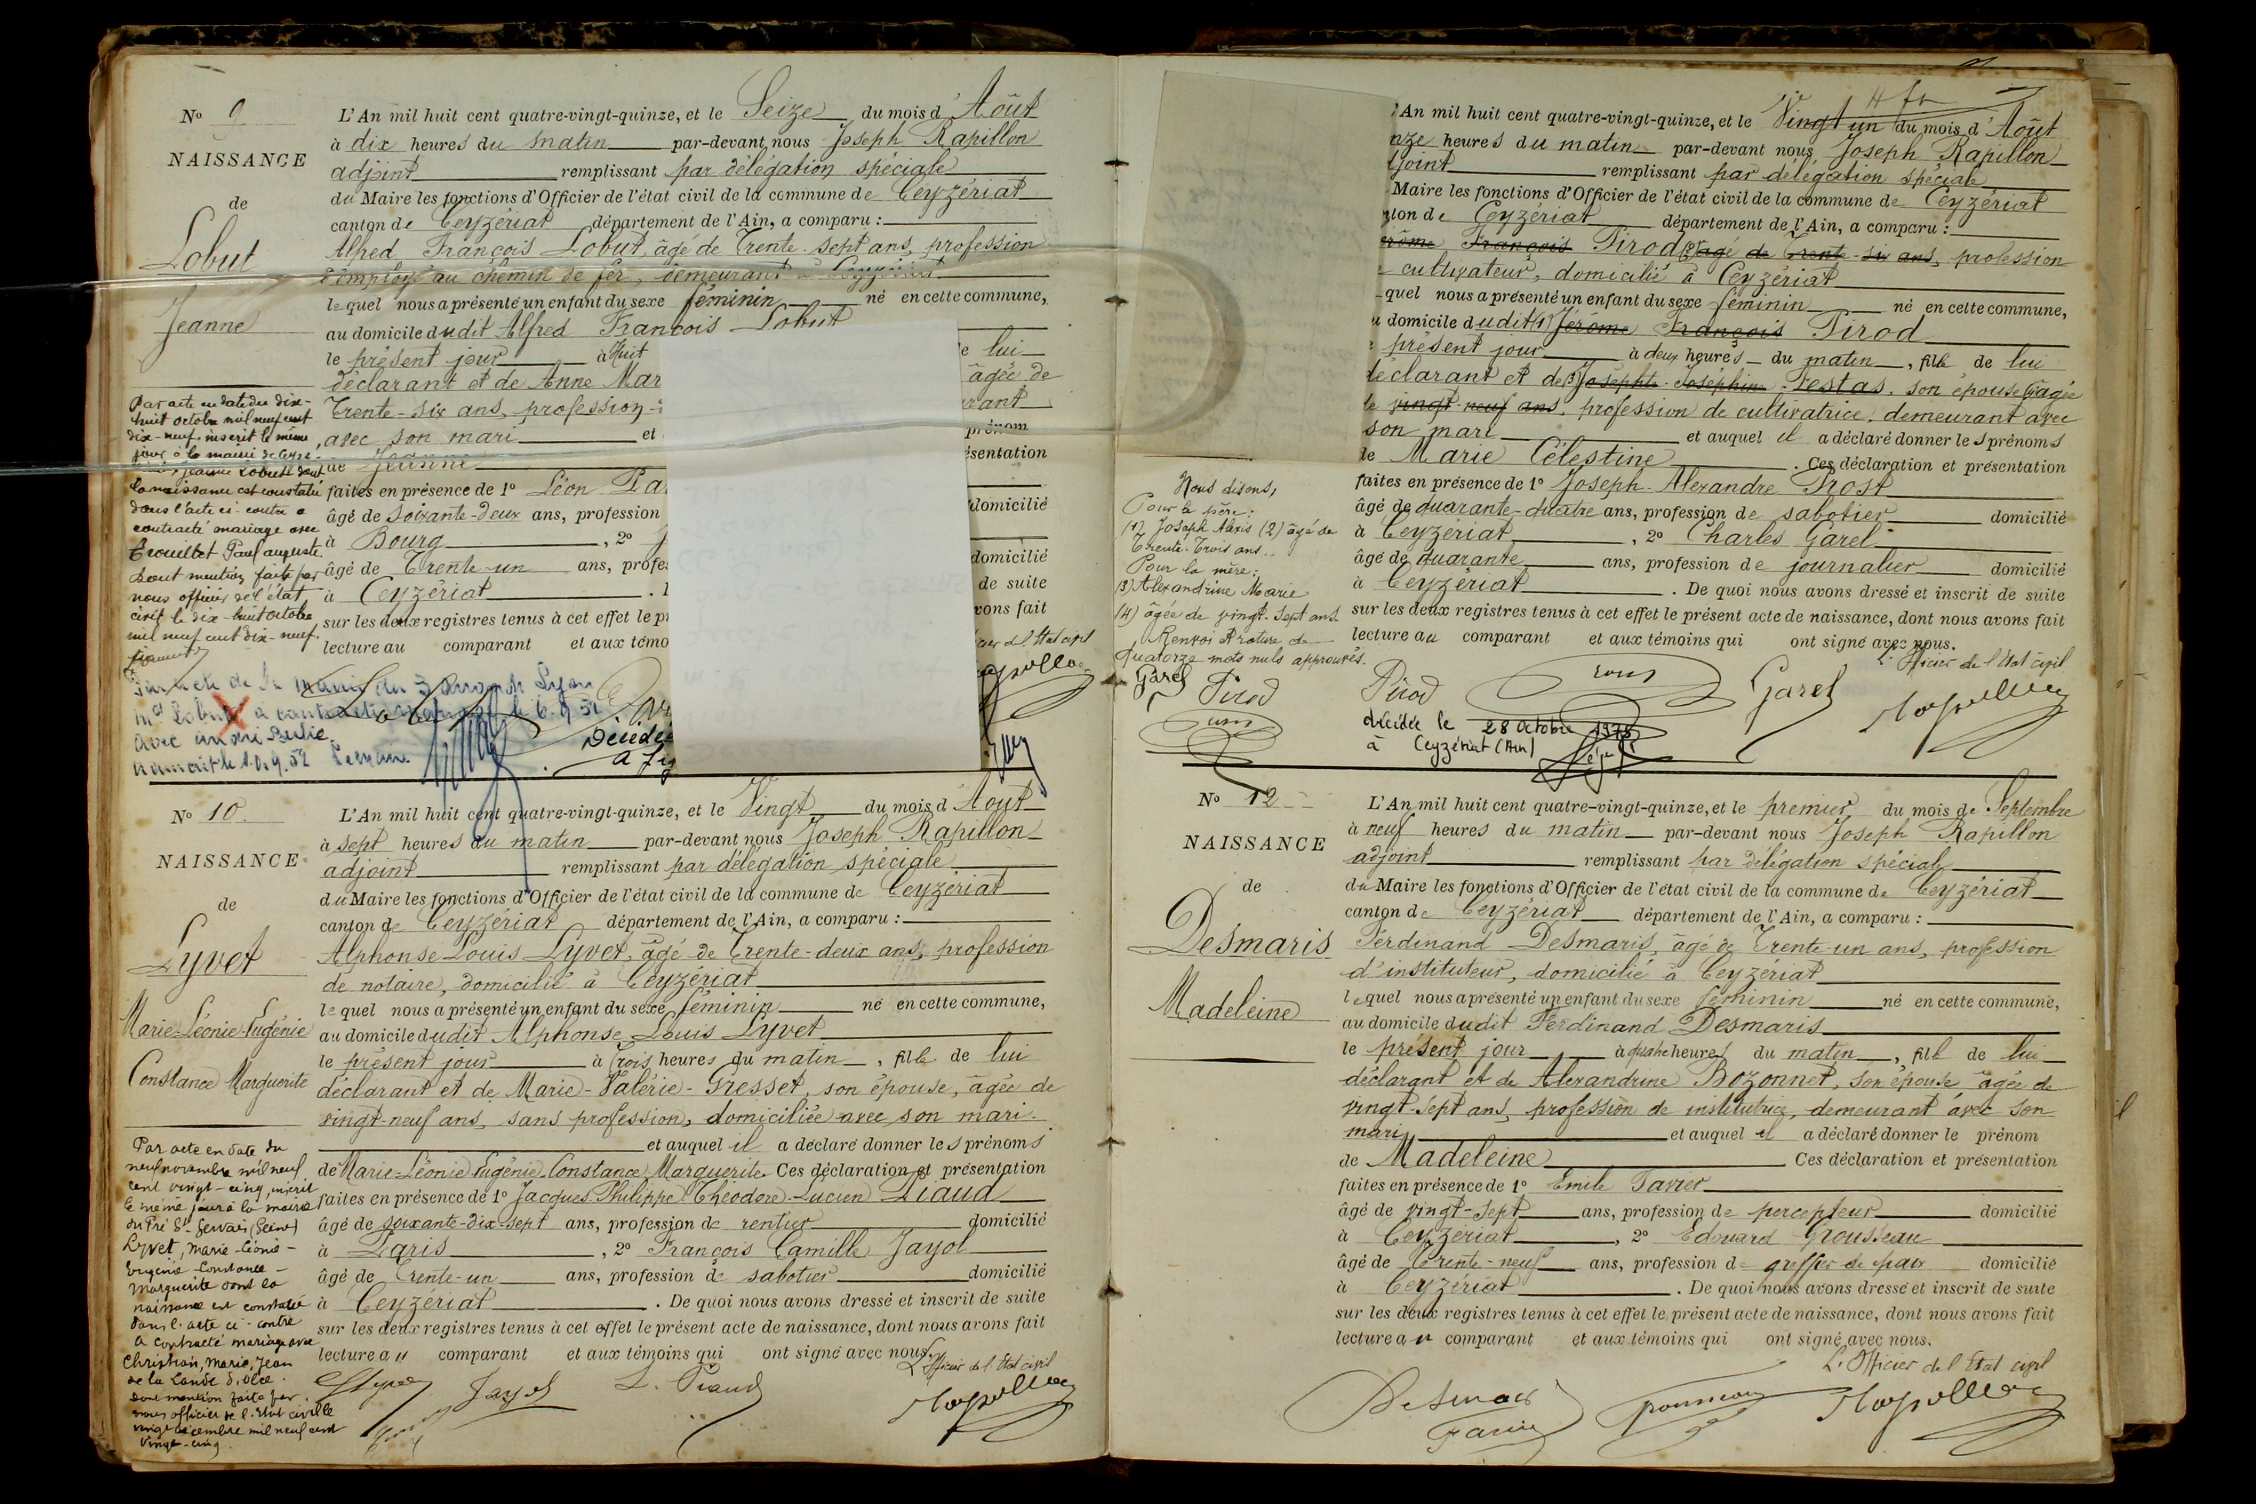 No 9
NAISSANCE
de
Lobut
Jeanne
L'An mil huit cent quatre-vingt-quinze, et le Seize du mois d'Août
à dix heures du matin par-devant nous Joseph Rapillon
adjoint remplissant par délégation spéciale
du Maire les fonctions d'Officier de l'état civil de la commune de Ceyzériat
canton de Ceyzériat département de l'Ain, a comparu :
Alfred François Lobut, âgé de Trente-sept ans, profession
d'employé au chemin de fer, demeurant à Ceyzériat
lequel nous a présenté un enfant du sexe féminin né en cette commune,
au domicile dudit Alfred François Lobut
le présent jour à huit
de lui
déclarant et de Anne Mar
âgée de
Trente-six ans, profession
avec son mari et
prénom
de Jeanne
faites en présence de 1o Léon
âgé de soixante-deux ans, profession
domicilié
à Bourg , 2o
âgé de Trente-un ans, profes
domicilié
à Ceyzériat
de suite
sur les deux registres tenus à cet effet le p
vons fait
lecture au comparant et aux témo
Par acte en date du dix-
huit octobre mil neuf cent
dix-neuf, inscrit le même
jour à la mairie de Ceyzé-
riat, Jeanne Lobut dont
la naissance est constatée
dans l'acte ci-contre a
contracté mariage avec
Trouillet Paul auguste
Dont mention faite par
nous officier de l'état
civil le dix-huit octobre
mil neuf cent dix-neuf.
Décédée
No 10
NAISSANCE
de
Lyvet
Marie-Léonie-Eugénie
Constance Marguerite
L'An mil huit cent quatre-vingt-quinze, et le Vingt du mois d'Août
à sept heures du matin par-devant nous Joseph Rapillon
adjoint remplissant par délégation spéciale
du Maire les fonctions d'Officier de l'état civil de la commune de Ceyzériat
canton de Ceyzériat département de l'Ain, a comparu :
Alphonse Louis Lyvet, âgé de Trente-deux ans, profession
de notaire, domicilié à Ceyzériat
lequel nous a présenté un enfant du sexe féminin né en cette commune,
au domicile dudit Alphonse Louis Lyvet
le présent jour à Trois heures du matin , fille de lui
déclarant et de Marie-Valérie-Gresset, son épouse, âgée de
vingt-neuf ans, sans profession, domiciliée avec son mari
et auquel il a déclaré donner les prénoms
de Marie-Léonie Eugénie Constance Marguerite. Ces déclaration et présentation
faites en présence de 1o Jacques Philippe Théodore Lucien Piaud
âgé de soixante-dix-sept ans, profession de rentier domicilié
à Paris , 2o François Camille Jayol
âgé de Trente-un ans, profession de sabotier domicilié
à Ceyzériat . De quoi nous avons dressé et inscrit de suite
sur les deux registres tenus à cet effet le présent acte de naissance, dont nous avons fait
lecture au comparant et aux témoins qui ont signé avec nous.
L'Officier de l'Etat civil
Par acte en date du
neuf novembre mil neuf
cent vingt-cinq, inscrit
le même jour à la mairie
du Pré St-Gervais (Seine)
Lyvet, Marie-Léonie-
Eugénie-Constance-
Marguerite dont la
naissance est constatée
dans l'acte ci-contre
a contracté mariage avec
Christian, Marie, Jean
de la Lande d'Olce.
dont mention faite par
nous officier de l'Etat civil le
vingt décembre mil neuf cent
vingt-cinq
Jayol
L. Piaud
L'An mil huit cent quatre-vingt-quinze, et le Vingt un du mois d'Août
nze heures du matin par-devant nous Joseph Rapillon
joint remplissant par délégation spéciale
Maire les fonctions d'Officier de l'état civil de la commune de Ceyzériat
ton de Ceyzériat département de l'Ain, a comparu :
rôme François Pirod (2) âgé de Trente-six ans, profession
cultivateur, domicilié à Ceyzériat
quel nous a présenté un enfant du sexe féminin né en cette commune,
domicile dudit (1) Jérôme François Pirod
présent jour à deux heures du matin , fille de lui
déclarant et de (3) Josephte Joséphine Restas, son épouse (4) âgée
de vingt-neuf ans, profession de cultivatrice, demeurant avec
son mari et auquel il a déclaré donner les prénoms
de Marie Célestine . Ces déclaration et présentation
faites en présence de 1o Joseph-Alexandre Prost
âgé de quarante-quatre ans, profession de sabotier domicilié
à Ceyzériat , 2o Charles Garel
âgé de quarante ans, profession de journalier domicilié
à Ceyzériat . De quoi nous avons dressé et inscrit de suite
sur les deux registres tenus à cet effet le présent acte de naissance, dont nous avons fait
lecture au comparant et aux témoins qui ont signé avec nous.
L'Officier de l'Etat civil
Nous disons,
Pour le père:
(1) Joseph Alexis (2) âgé de
Trente-Trois ans..
Pour la mère:
(3) Alexandrine Marie
(4) âgée de vingt-sept ans
Renvoi & rature de
quatorze mots nuls approuvés.
Garel Pirod
Pirod
Garel
décédée le 28 Octobre 1975
à Ceyzériat (Ain)
No 12
NAISSANCE
de
Desmaris
Madeleine
L'An mil huit cent quatre-vingt-quinze, et le premier du mois de Septembre
à neuf heures du matin par-devant nous Joseph Rapillon
adjoint remplissant par délégation spéciale
du Maire les fonctions d'Officier de l'état civil de la commune de Ceyzériat
canton de Ceyzériat département de l'Ain, a comparu :
Ferdinand Desmaris, âgé de Trente-un ans, profession
d'instituteur, domicilié à Ceyzériat
lequel nous a présenté un enfant du sexe féminin né en cette commune,
au domicile dudit Ferdinand Desmaris
le présent jour à quatre heures du matin , fille de lui
déclarant et de Alexandrine Bozonnet, son épouse âgée de
vingt-sept ans, profession de institutrice, demeurant avec son
mari et auquel il a déclaré donner le prénom
de Madeleine Ces déclaration et présentation
faites en présence de 1o Emile Tavier
âgé de vingt-sept ans, profession de percepteur domicilié
à Ceyzériat , 2o Edouard Grousseau
âgé de Trente-neuf ans, profession de greffier de paix domicilié
à Ceyzériat . De quoi nous avons dressé et inscrit de suite
sur les deux registres tenus à cet effet le présent acte de naissance, dont nous avons fait
lecture au comparant et aux témoins qui ont signé avec nous.
L'Officier de l'Etat civil
Desmaris